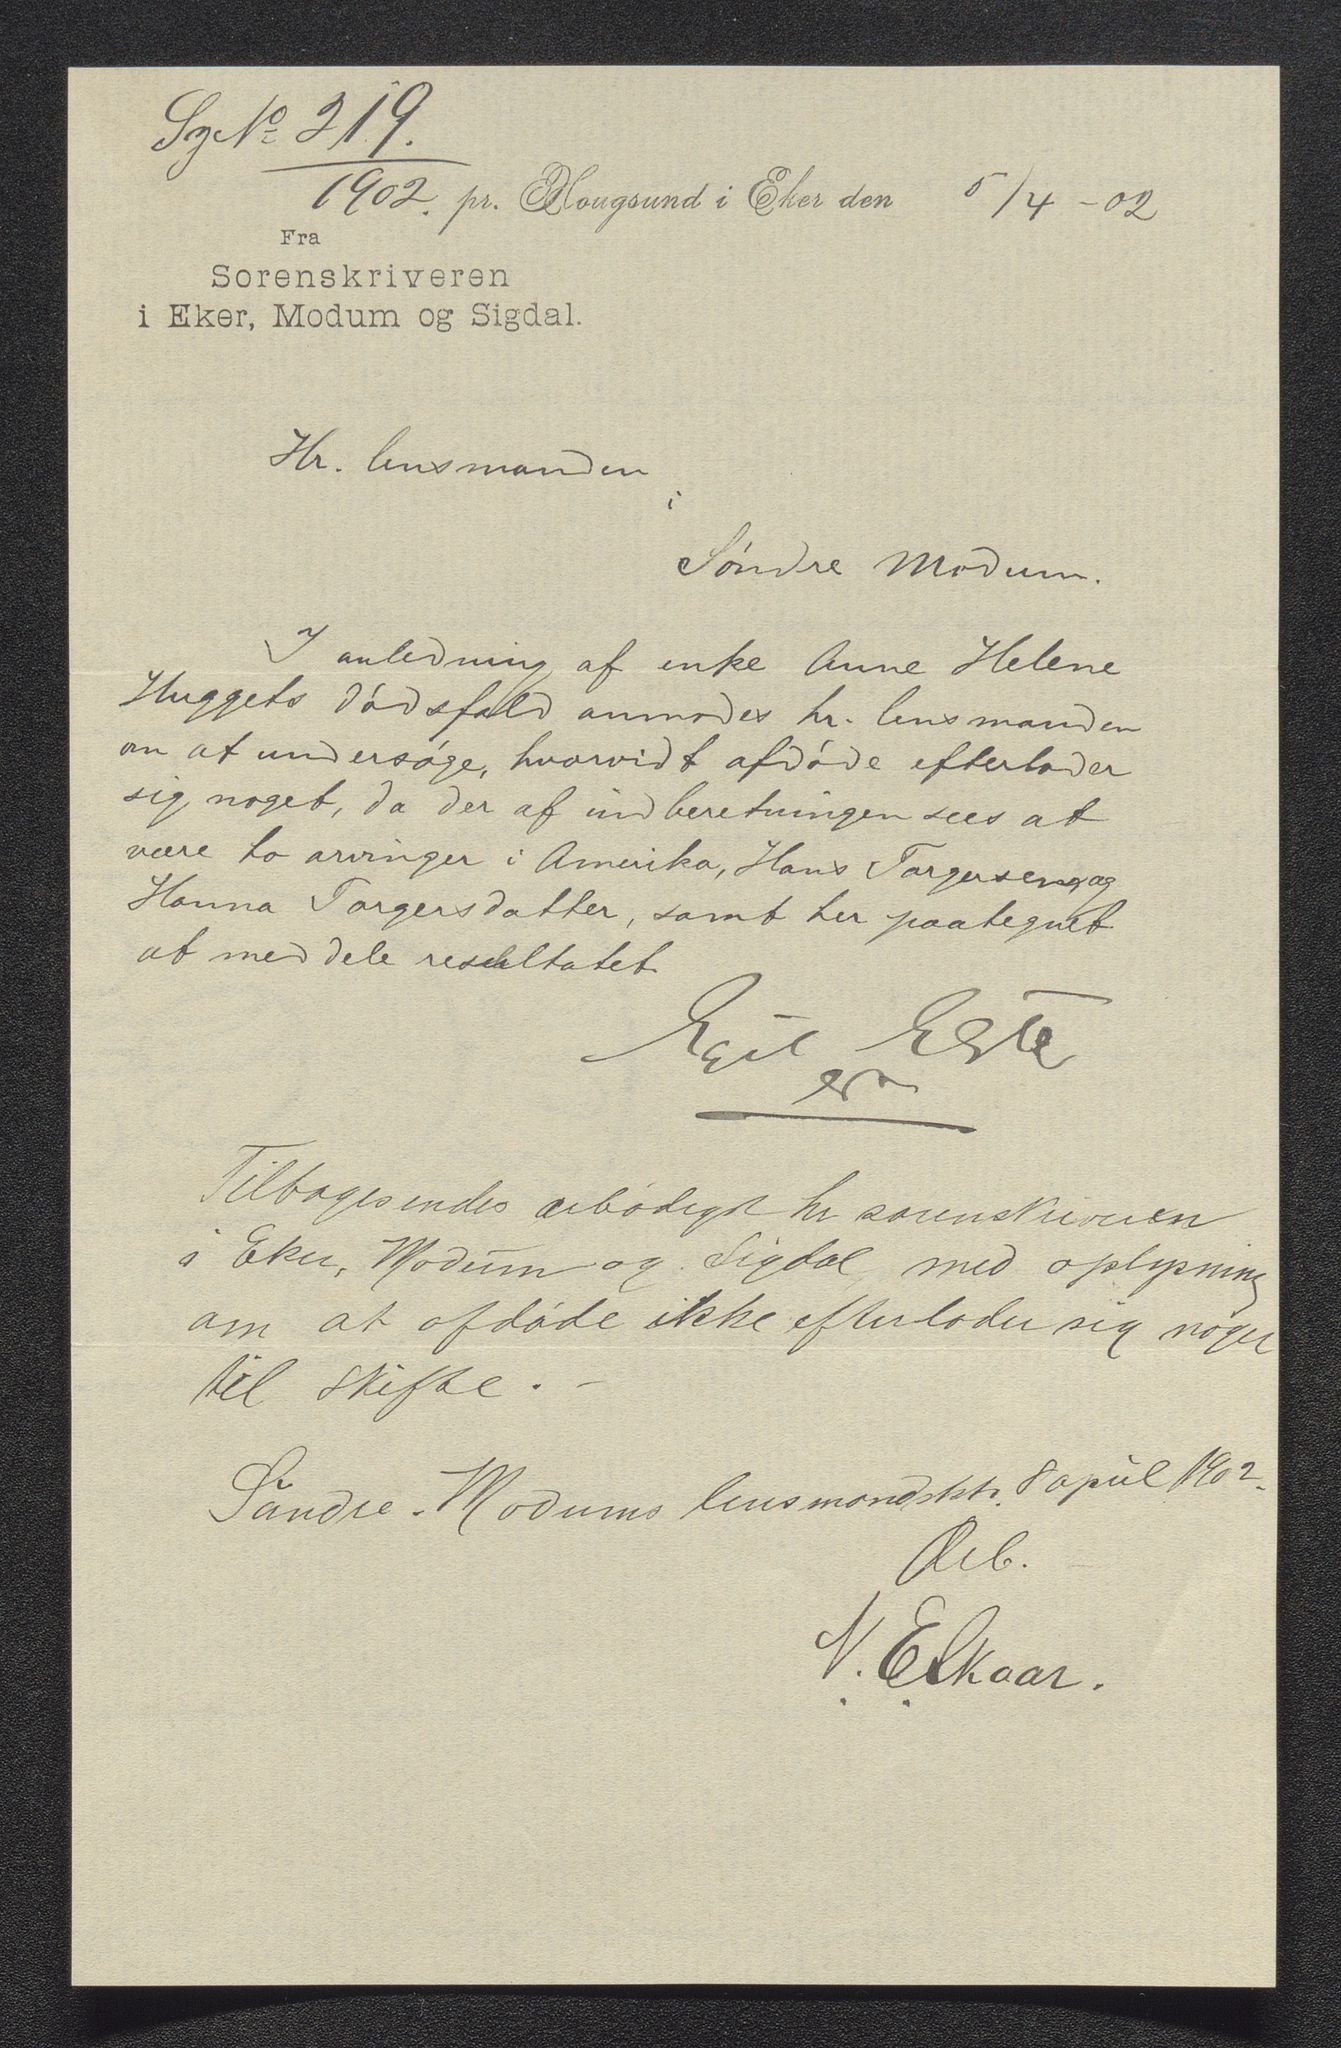 No 219.
1902. pr. Hougsund i Eker den 5/4 - 02
Fra
Sorenskriveren
i Eker, Modum og Sigdal.
Hr. lensmanden
i
Søndre Modum.
I anledning af enke Anne Helene
Huggets dødsfald anmodes hr. lensmanden
om at undersøge, hvorvidt afdøde efterlader
sig noget, da der af indberetningen sees at
være to arvinger i Amerika, Hans Torgersen og
Hanna Torgersdatter, samt her paategnet
at meddele resultatet
Egil
Tilbagesendes ærbødigst hr sorenskriveren
i Eker, Modum og Sigdal med oplysning
om at afdøde ikke efterlader sig noget
til skifte. -
Søndre - Modums lensmandsktr. 8 april 1902.
Ærb.
N. Elkaar.